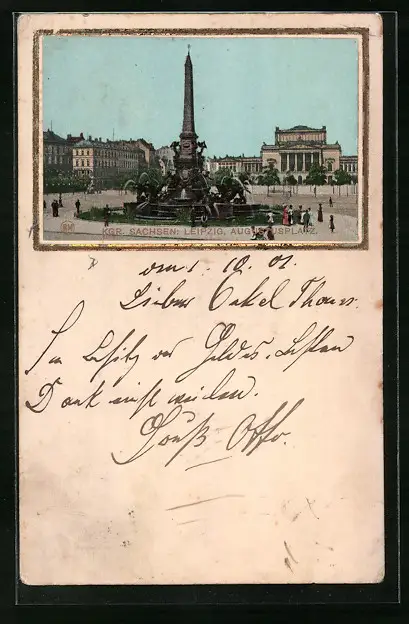 KGR. SACHSEN: LEIPZIG, AUGUSTUSPLATZ.
am 1. 10. 01.
Lieber Onkel Thomas.
Im Besitz des Geldes. Besten
Dank einstweilen.
Gruß Otto.